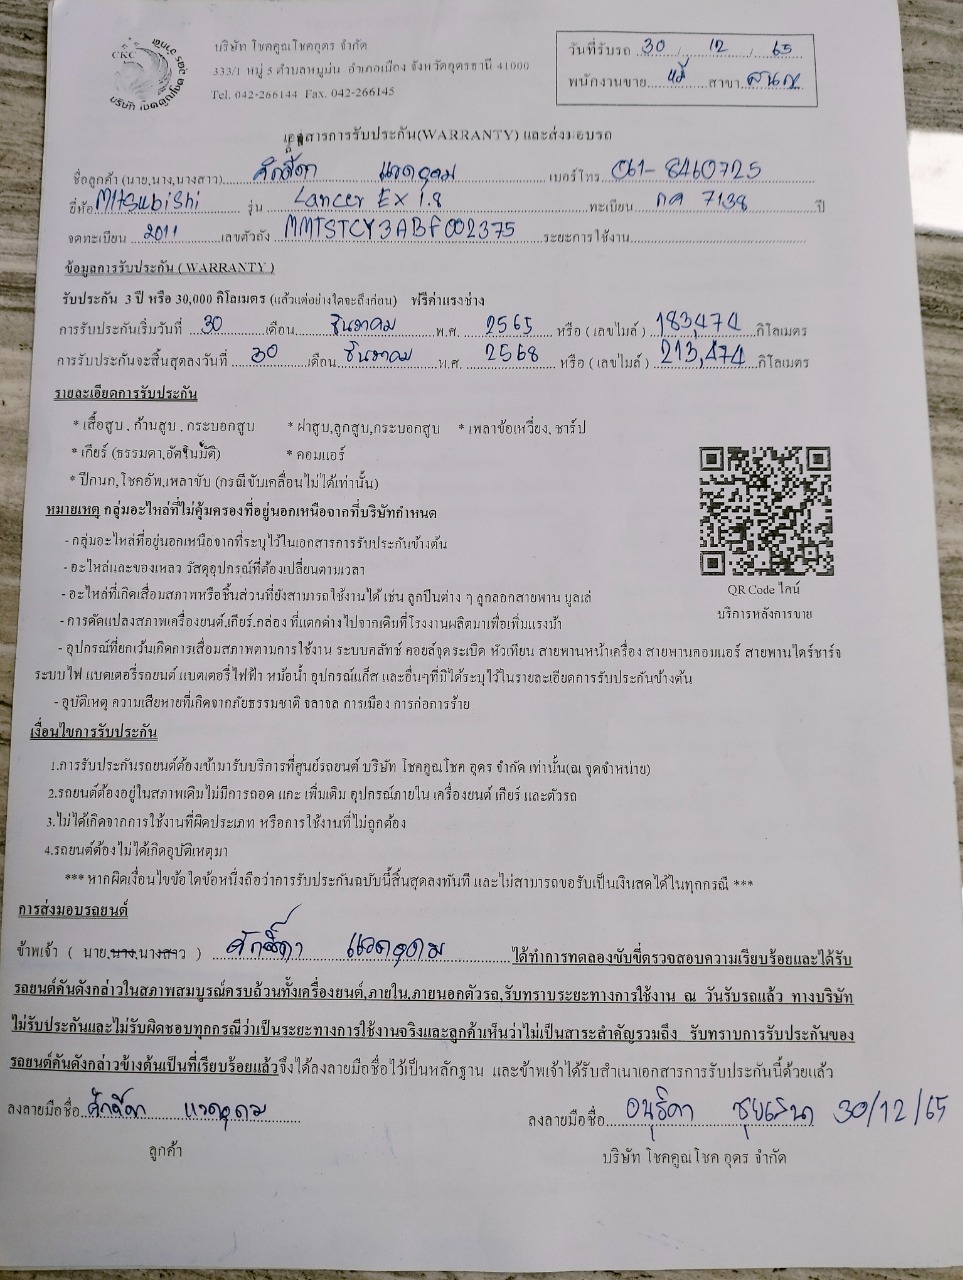 CKC
บริษัท โชคคูณโชคอุดร จำกัด
333/1 หมู่ 5 ตำบลหมูม่น อำเภอเมือง จังหวัดอุดรธานี 41000
Tel. 042-266144 Fax. 042-266145
วันที่รับรถ 30 / 12 / 65
พนักงานขาย สาขา
เอกสารการรับประกัน(WARRANTY) และส่งมอบรถ
ชื่อลูกค้า (นาย,นาง,นางสาว) ศักสิดา แวดอุดม เบอร์โทร 061-8460725
ยี่ห้อ Mitsubishi รุ่น Lancer EX 1.8 ทะเบียน กล 7138 ปี
จดทะเบียน 2011 เลขตัวถัง MMTSTCY3ABF002375 ระยะการใช้งาน
ข้อมูลการรับประกัน ( WARRANTY )
รับประกัน 3 ปี หรือ 30,000 กิโลเมตร (แล้วแต่อย่างใดจะถึงก่อน) ฟรีค่าแรงช่าง
การรับประกันเริ่มวันที่ 30 เดือน ธันวาคม พ.ศ. 2565 หรือ ( เลขไมล์ ) 183,474 กิโลเมตร
การรับประกันจะสิ้นสุดลงวันที่ 30 เดือน ธันวาคม พ.ศ. 2568 หรือ ( เลขไมล์ ) 213,474 กิโลเมตร
รายละเอียดการรับประกัน
* เสื้อสูบ , ก้านสูบ , กระบอกสูบ * ฝาสูบ,ลูกสูบ,กระบอกสูบ * เพลาข้อเหวี่ยง, ชาร์ป
* เกียร์ (ธรรมดา,อัตโนมัติ) * คอมแอร์
* ปีกนก,โชคอัพ,เพลาขับ (กรณีขับเคลื่อนไม่ได้เท่านั้น)
หมายเหตุ กลุ่มอะไหล่ที่ไม่คุ้มครองที่อยู่นอกเหนือจากที่บริษัทกำหนด
- กลุ่มอะไหล่ที่อยู่นอกเหนือจากที่ระบุไว้ในเอกสารการรับประกันข้างต้น
- อะไหล่และของเหลว วัสดุอุปกรณ์ที่ต้องเปลี่ยนตามเวลา
- อะไหล่ที่เกิดเสื่อมสภาพหรือชิ้นส่วนที่ยังสามารถใช้งานได้ เช่น ลูกปืนต่าง ๆ ลูกลอกสายพาน มูลเล่
- การดัดแปลงสภาพเครื่องยนต์,เกียร์,กล่อง ที่แตกต่างไปจากเดิมที่โรงงานผลิตมาเพื่อเพิ่มแรงม้า
- อุปกรณ์ที่ยกเว้นเกิดการเสื่อมสภาพตามการใช้งาน ระบบคลัทช์ คอยล์จุดระเบิด หัวเทียน สายพานหน้าเครื่อง สายพานคอมแอร์ สายพานไดร์ชาร์จ
ระบบไฟ แบตเตอรี่รถยนต์ แบตเตอรี่ไฟฟ้า หม้อน้ำ อุปกรณ์แก๊ส และอื่นๆที่มิได้ระบุไว้ในรายละเอียดการรับประกันข้างต้น
- อุบัติเหตุ ความเสียหายที่เกิดจากภัยธรรมชาติ จลาจล การเมือง การก่อการร้าย
QR Code ไลน์
บริการหลังการขาย
เงื่อนไขการรับประกัน
1.การรับประกันรถยนต์ต้องเข้ามารับบริการที่ศูนย์รถยนต์ บริษัท โชคคูณโชค อุดร จำกัด เท่านั้น(ณ จุดจำหน่าย)
2.รถยนต์ต้องอยู่ในสภาพเดิมไม่มีการถอด แกะ เพิ่มเติม อุปกรณ์ภายใน เครื่องยนต์ เกียร์ และตัวรถ
3.ไม่ได้เกิดจากการใช้งานที่ผิดประเภท หรือการใช้งานที่ไม่ถูกต้อง
4.รถยนต์ต้องไม่ได้เกิดอุบัติเหตุมา
*** หากผิดเงื่อนไขข้อใดข้อหนึ่งถือว่าการรับประกันฉบับนี้สิ้นสุดลงทันที และไม่สามารถขอรับเป็นเงินสดได้ในทุกกรณี ***
การส่งมอบรถยนต์
ข้าพเจ้า ( นาย,นาง,นางสาว ) ศักสิดา แวดอุดม ได้ทำการทดลองขับขี่ตรวจสอบความเรียบร้อยและได้รับ
รถยนต์คันดังกล่าวในสภาพสมบูรณ์ครบถ้วนทั้งเครื่องยนต์,ภายใน,ภายนอกตัวรถ,รับทราบระยะทางการใช้งาน ณ วันรับรถแล้ว ทางบริษัท
ไม่รับประกันและไม่รับผิดชอบทุกกรณีว่าเป็นระยะทางการใช้งานจริงและลูกค้าเห็นว่าไม่เป็นสาระสำคัญรวมถึง รับทราบการรับประกันของ
รถยนต์คันดังกล่าวข้างต้นเป็นที่เรียบร้อยแล้วจึงได้ลงลายมือชื่อไว้เป็นหลักฐาน และข้าพเจ้าได้รับสำเนาเอกสารการรับประกันนี้ด้วยแล้ว
ลงลายมือชื่อ ศักสิดา แวดอุดม ลงลายมือชื่อ อนุธิดา 30/12/65
ลูกค้า บริษัท โชคคูณโชค อุดร จำกัด